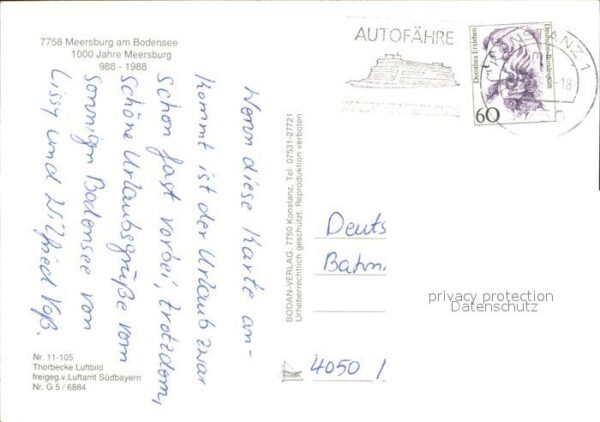 7758 Meersburg am Bodensee
1000 Jahre Meersburg
988 - 1988
Wenn diese Karte an-
kommt ist der Urlaub zwar
schon fast vorbei, trotzdem,
schöne Urlaubsgrüße vom
sonnigen Bodensee von
Lissy und Wilfried Voß.
Nr. 11-105
Thorbecke Luftbild
freigeg.v.Luftamt Südbayern
Nr. G 5 / 6884
BODAN-VERLAG, 7750 Konstanz, Tel. 07531-27721
Urheberrechtlich geschützt. Reproduktion verboten
AUTOFÄHRE
KONSTANZ-MEERSBURG
Dorothea Erxleben
Deutsche Bundespost
60
KONSTANZ 1
-18
Deuts
Bahn
privacy protection
Datenschutz
4050